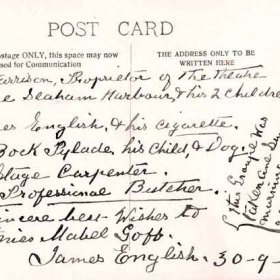 POST CARD
ostage ONLY, this space may now
sed for Communication
THE ADDRESS ONLY TO BE
WRITTEN HERE
arrison, Proprietor of The Theatre
e Seaham Harbour, & his 2 children
es English, & his Cigarette.
Bock Pylade, his Child, & Dog
Stage Carpenter.
Professional Butcher.
incere best Wishes to
Mabel Goff.
James English. 30-9-
this Group Was
taken